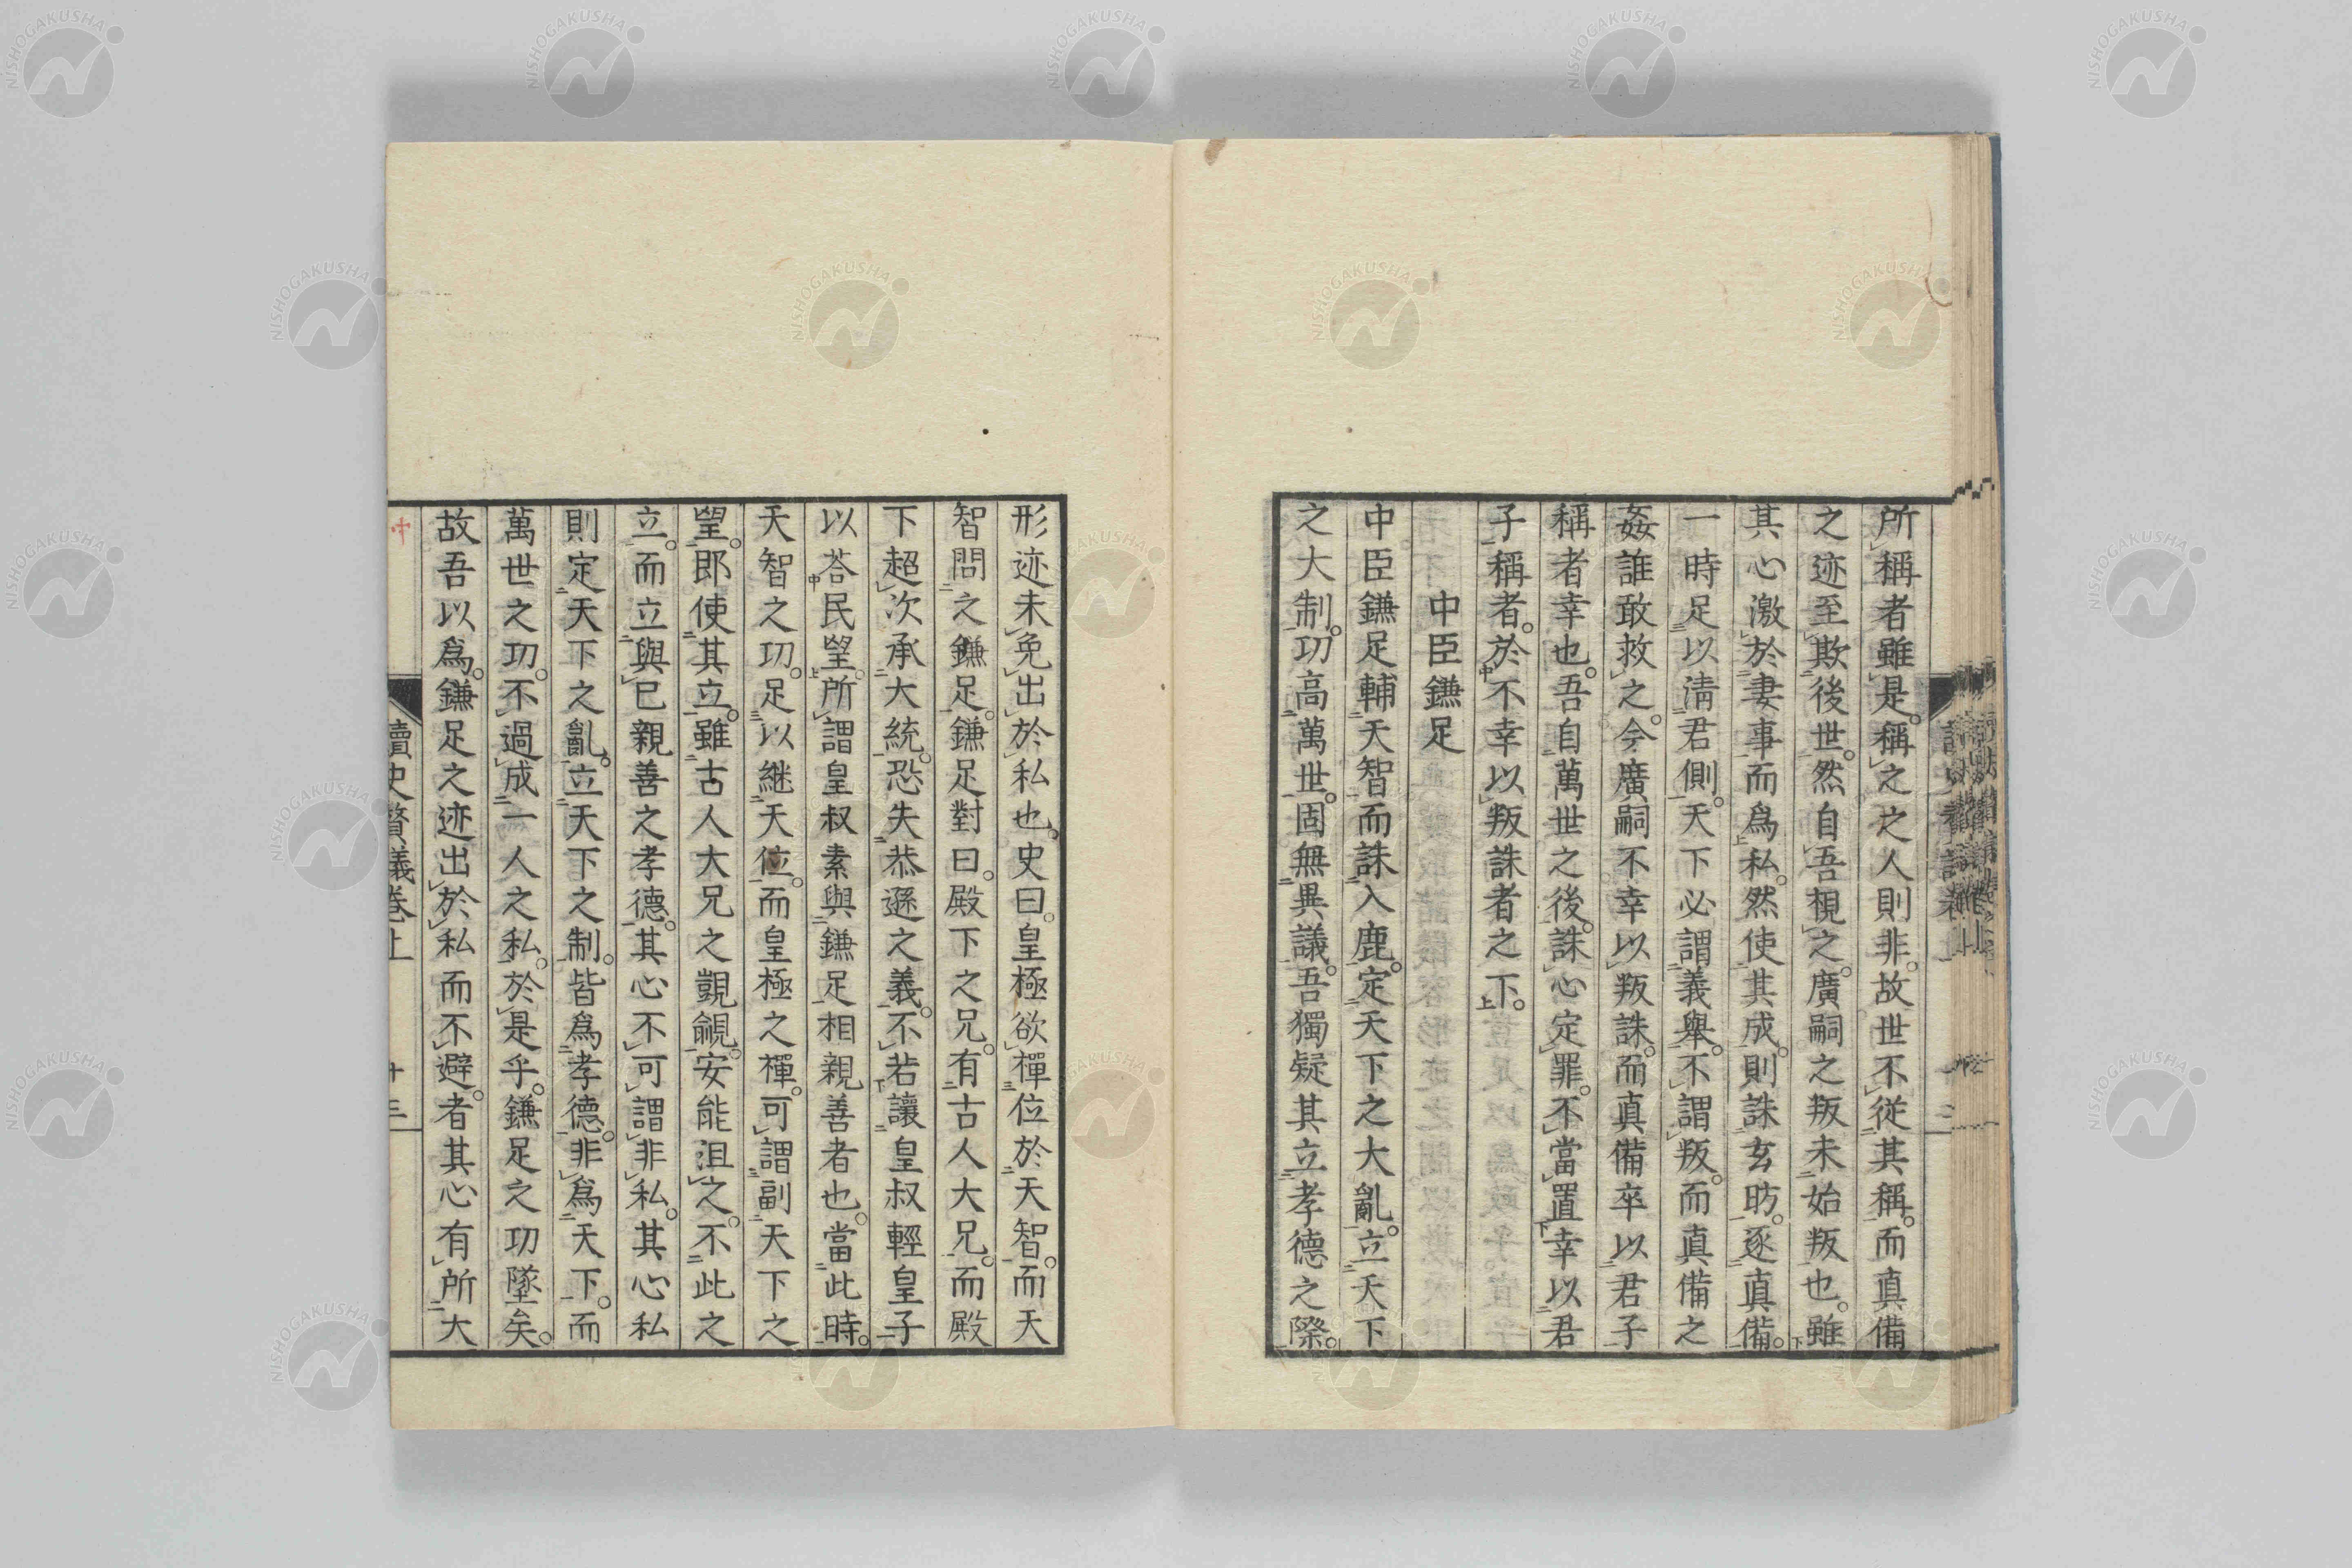 所稱者雖是。稱之之人則非。故世不從其稱。而真備
之迹至欺後世。然自吾覩之。廣嗣之叛未始叛也。雖
其心激於妻事而爲私。然使其成。則誅玄昉。逐真備。
一時足以清君側。天下必謂義舉。不謂叛。而真備之
姦誰敢救之。今廣嗣不幸以叛誅。而真備卒以君子
稱者幸也。吾自萬世之後。誅心定罪。不當置幸以君
子稱者。於不幸以叛誅者之下。
中臣鎌足
中臣鎌足輔天智而誅入鹿。定天下之大亂。立天下
之大制。功高萬世。固無異議。吾獨疑其立孝德之際。
形迹未免出於私也。史曰。皇極欲禪位於天智。而天
智問之鎌足。鎌足對曰。殿下之兄。有古人大兄。而殿
下超次承大統。恐失恭遜之義。不若讓皇叔輕皇子
以荅民望。所謂皇叔素與鎌足相親善者也。當此時。
天智之功。足以継天位。而皇極之禪。可謂副天下之
望。郎使其立。雖古人大兄之覬覦。安能沮之。不此之
立。而立與已親善之孝德。其心不可謂非私。其心私
則定天下之亂。立天下之制。皆爲孝德。非爲天下。而
萬世之功。不過成一人之私。於是乎。鎌足之功墜矣。
故吾以爲。鎌足之迹出於私而不避。者其心有所大
讀史贅議卷上
十三
NISHOGAKUSHA